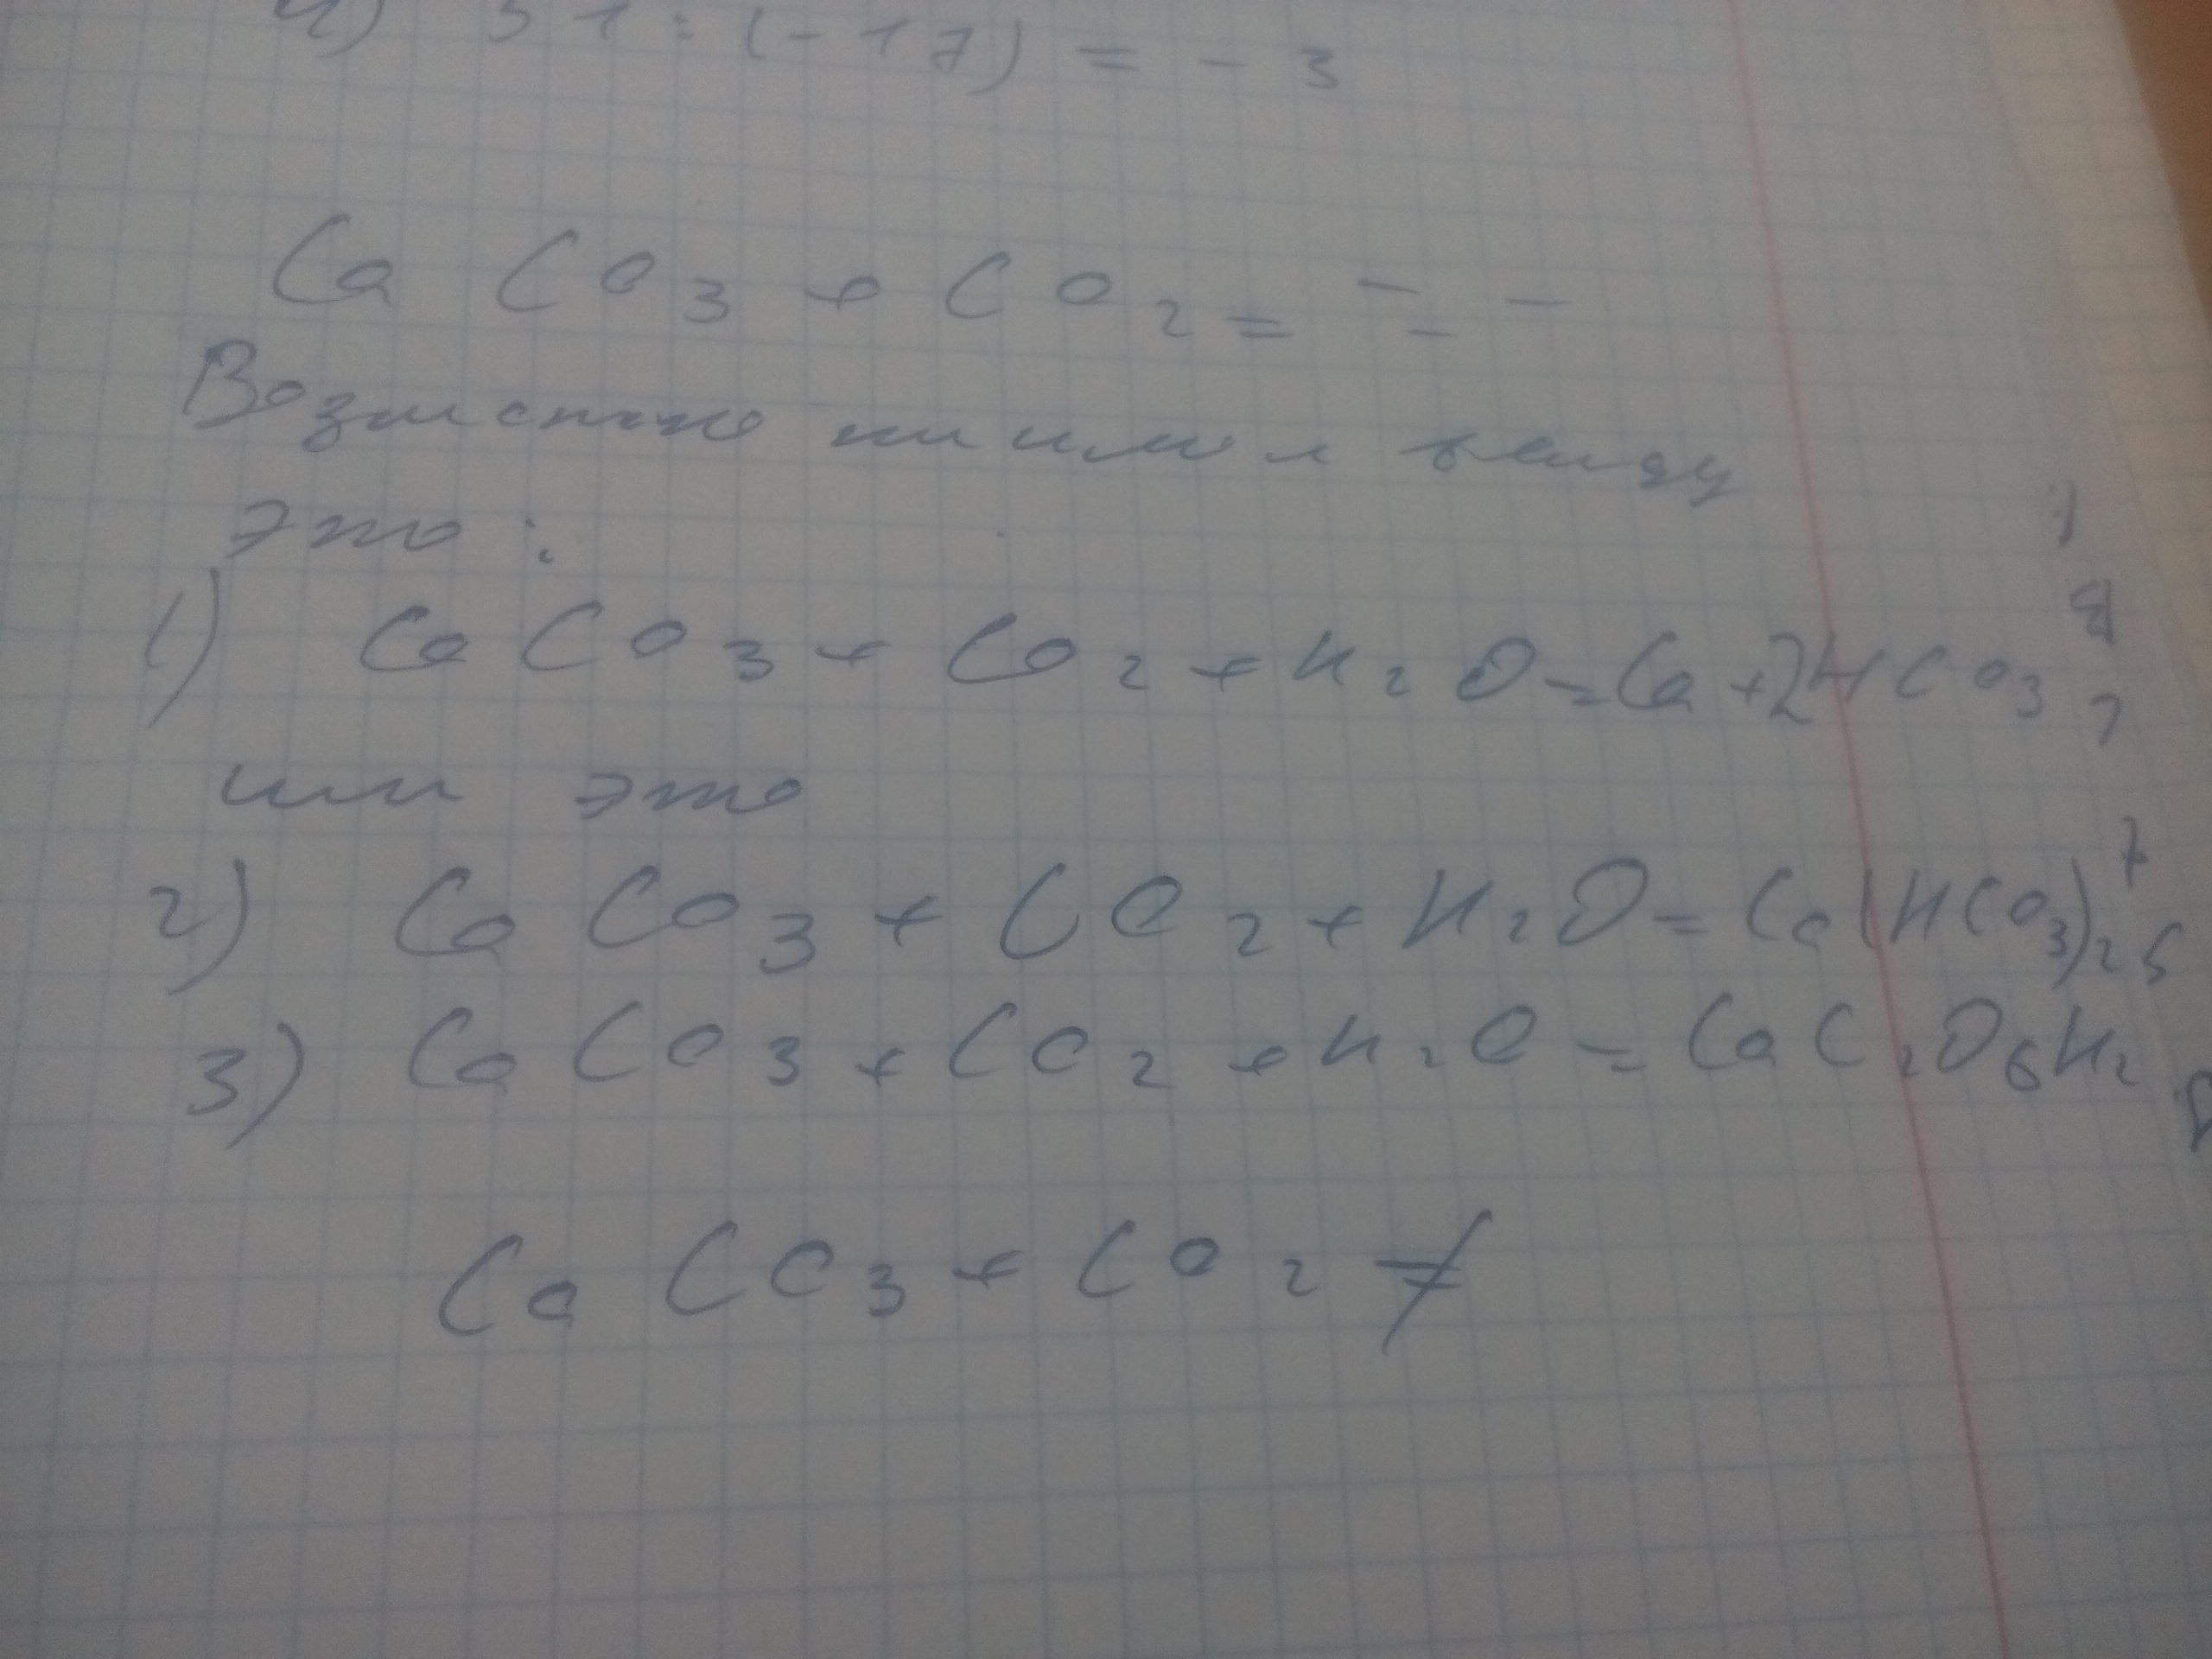 4) 51 : (-17) = - 3
Ca CO3 + CO2 = - - -
Возможно ни имел ввиду
это :
1) Ca CO3 + CO2 + H2O = Ca + 2HCO3
или это
2) Ca CO3 + CO2 + H2O = Ca(HCO3)2
3) Ca CO3 + CO2 + H2O = CaC2O6H2
Ca CO3 + CO2 ≠